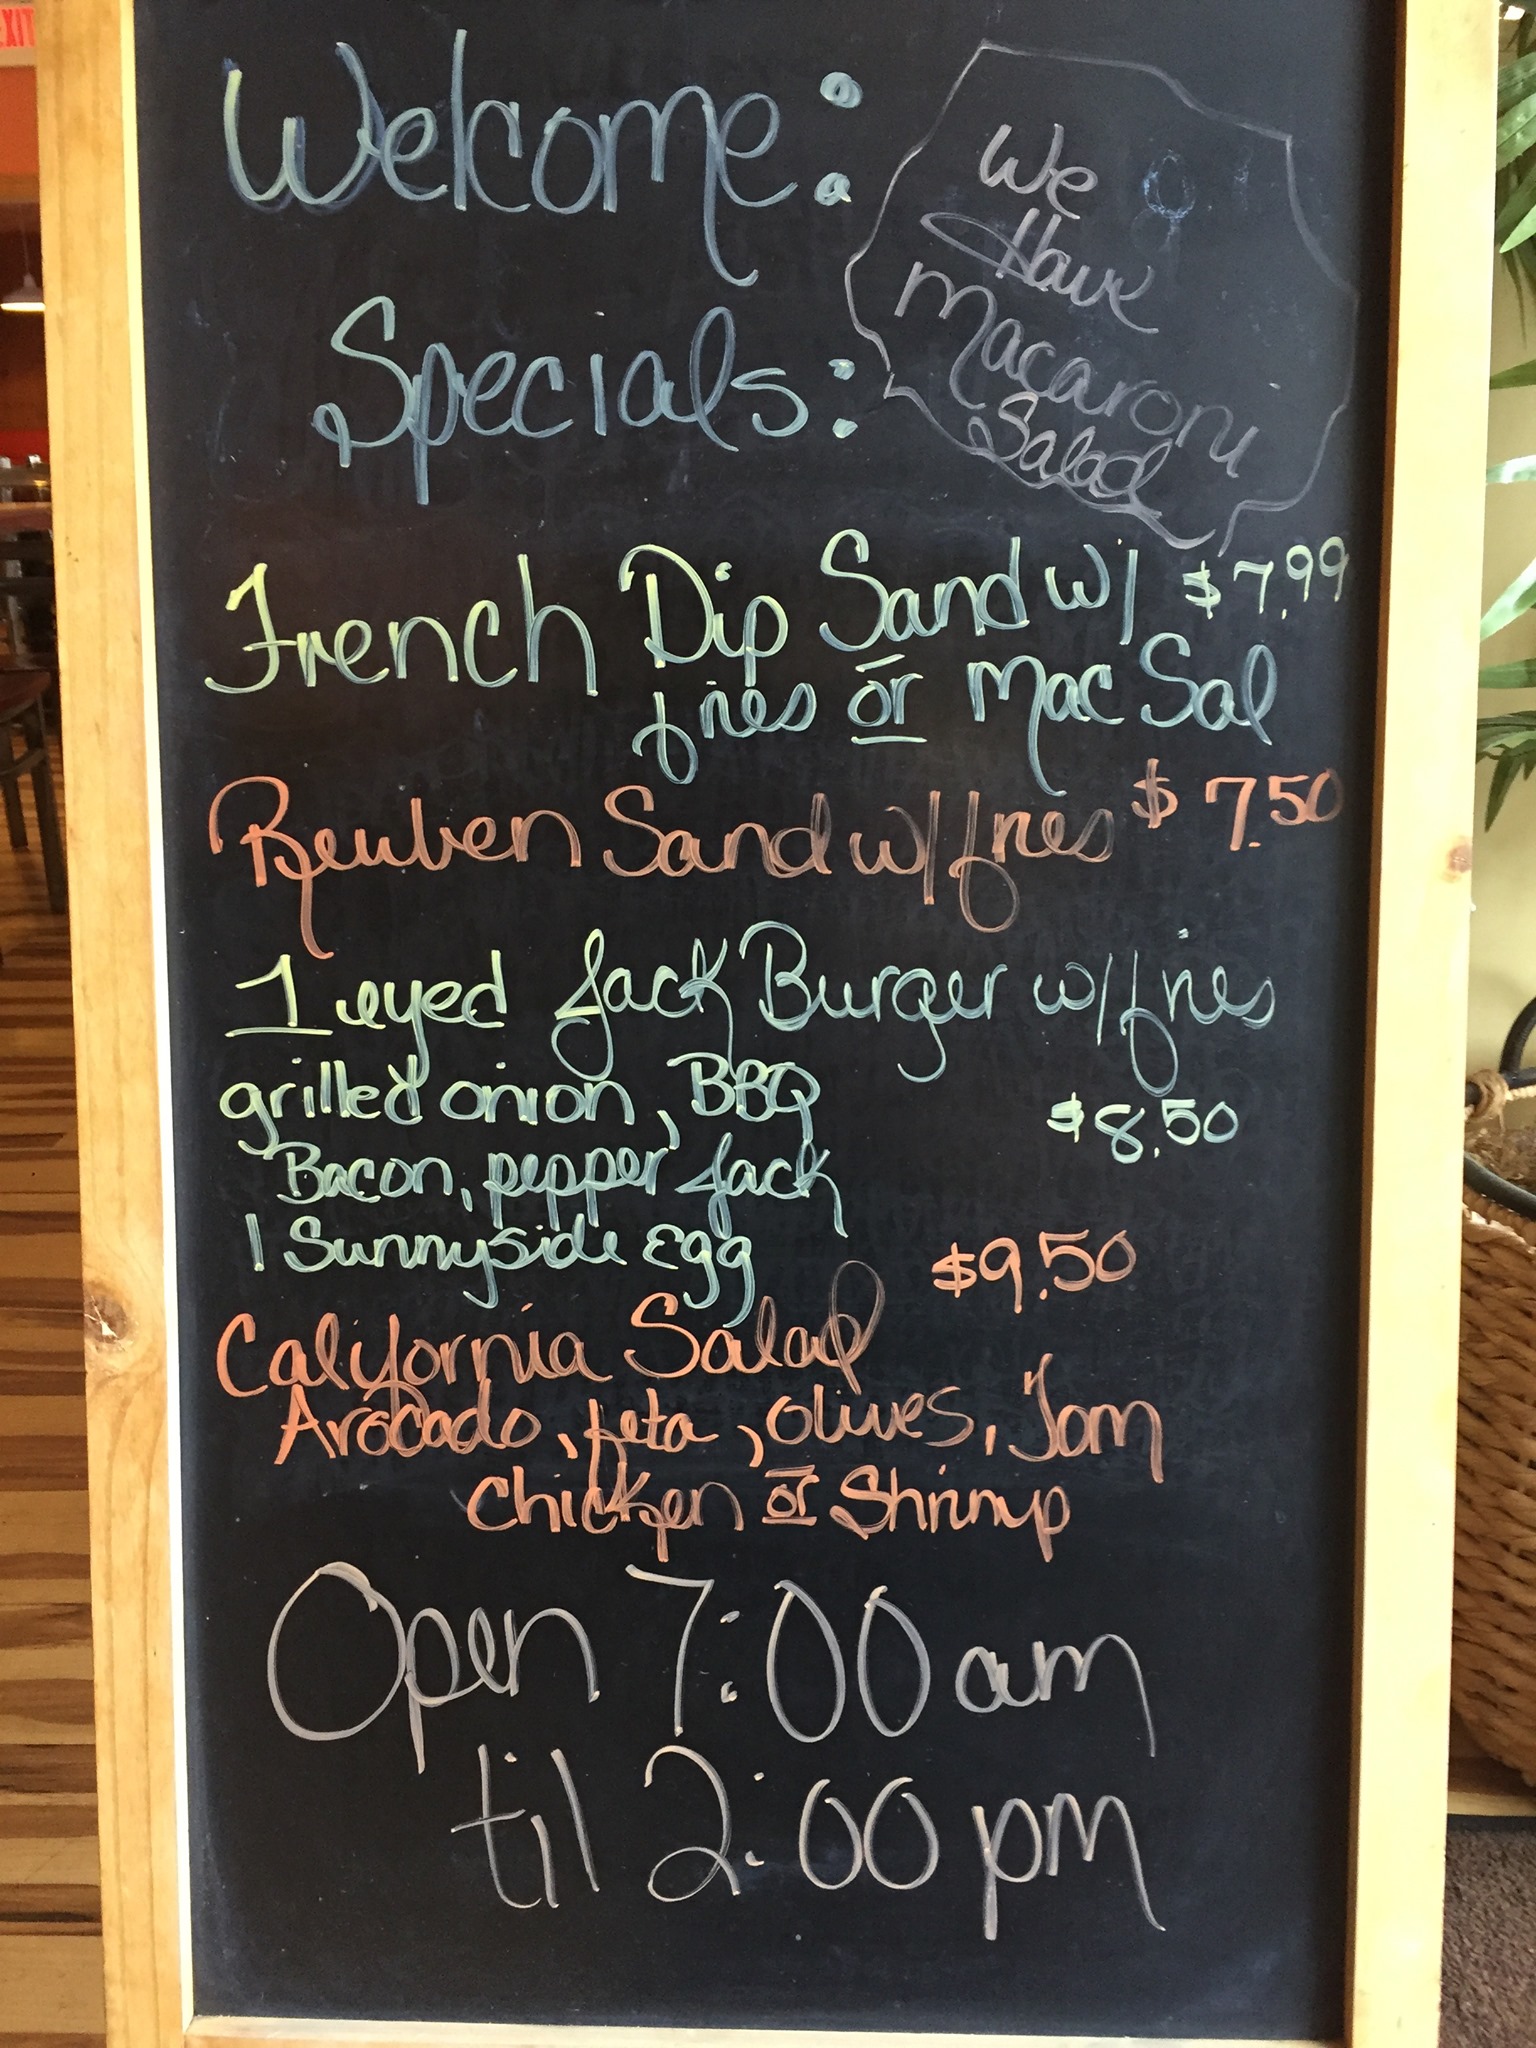 EXIT
Welcome:
We
Have
Macaroni
Salad
Specials:
French Dip Sand w/ $7.99
fries or Mac Sal
Reuben Sand w/ fries $7.50
1 eyed Jack Burger w/ fries
grilled onion, BBQ $8.50
Bacon, pepper Jack
1 Sunnyside Egg
$9.50
California Salad
Avocado, feta, olives, Tom
Chicken or Shrimp
Open 7:00 am
til 2:00 pm